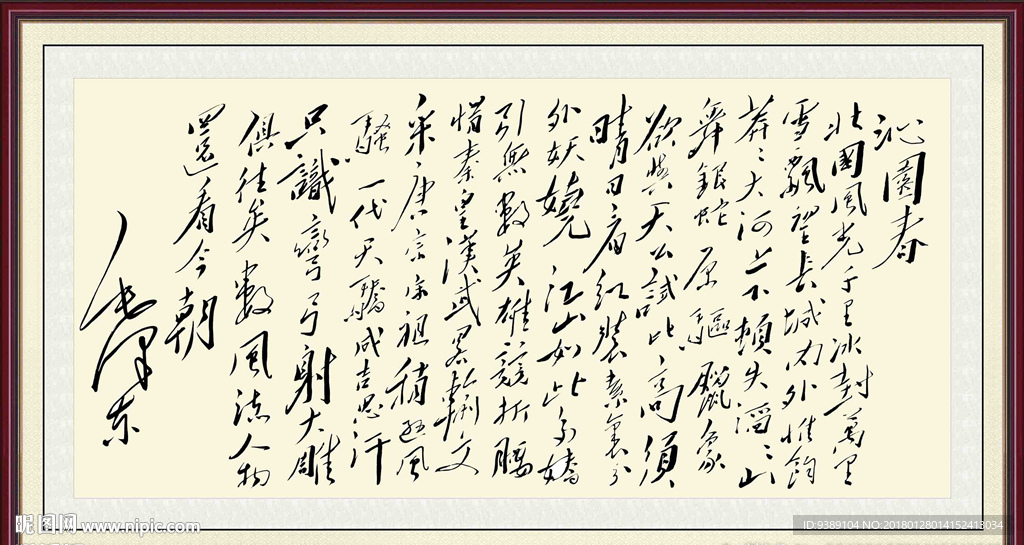 沁園春
北國風光千里冰封萬里
雪飄望長城内外惟餘
莽々大河上下頓失滔々山
舞銀蛇原驅臘象
欲與天公試比高須
晴日看紅裝素裹分
外妖嬈江山如此多嬌
引無數英雄競折腰
惜秦皇漢武畧輸文
采唐宗宋祖稍遜風
騷一代天驕成吉思汗
只識彎弓射大雕
俱往矣數風流人物
還看今朝
毛澤东
昵图网 www.nipic.com
ID:9389104 NO:20180128014152413034